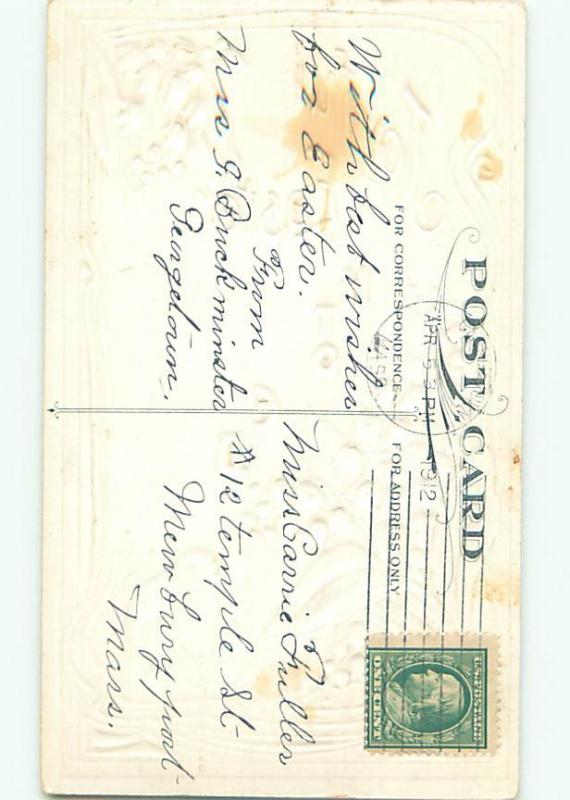 POST CARD
APR 5 3 PM 1912
MASS.
FOR CORRESPONDENCE
FOR ADDRESS ONLY
U.S. POSTAGE
ONE CENT
With best wishes
for Easter.
From
Mrs G. Buckminster
Georgetown.
Miss Carrie Fuller
#12 temple St-
Newburyport-
Mass.